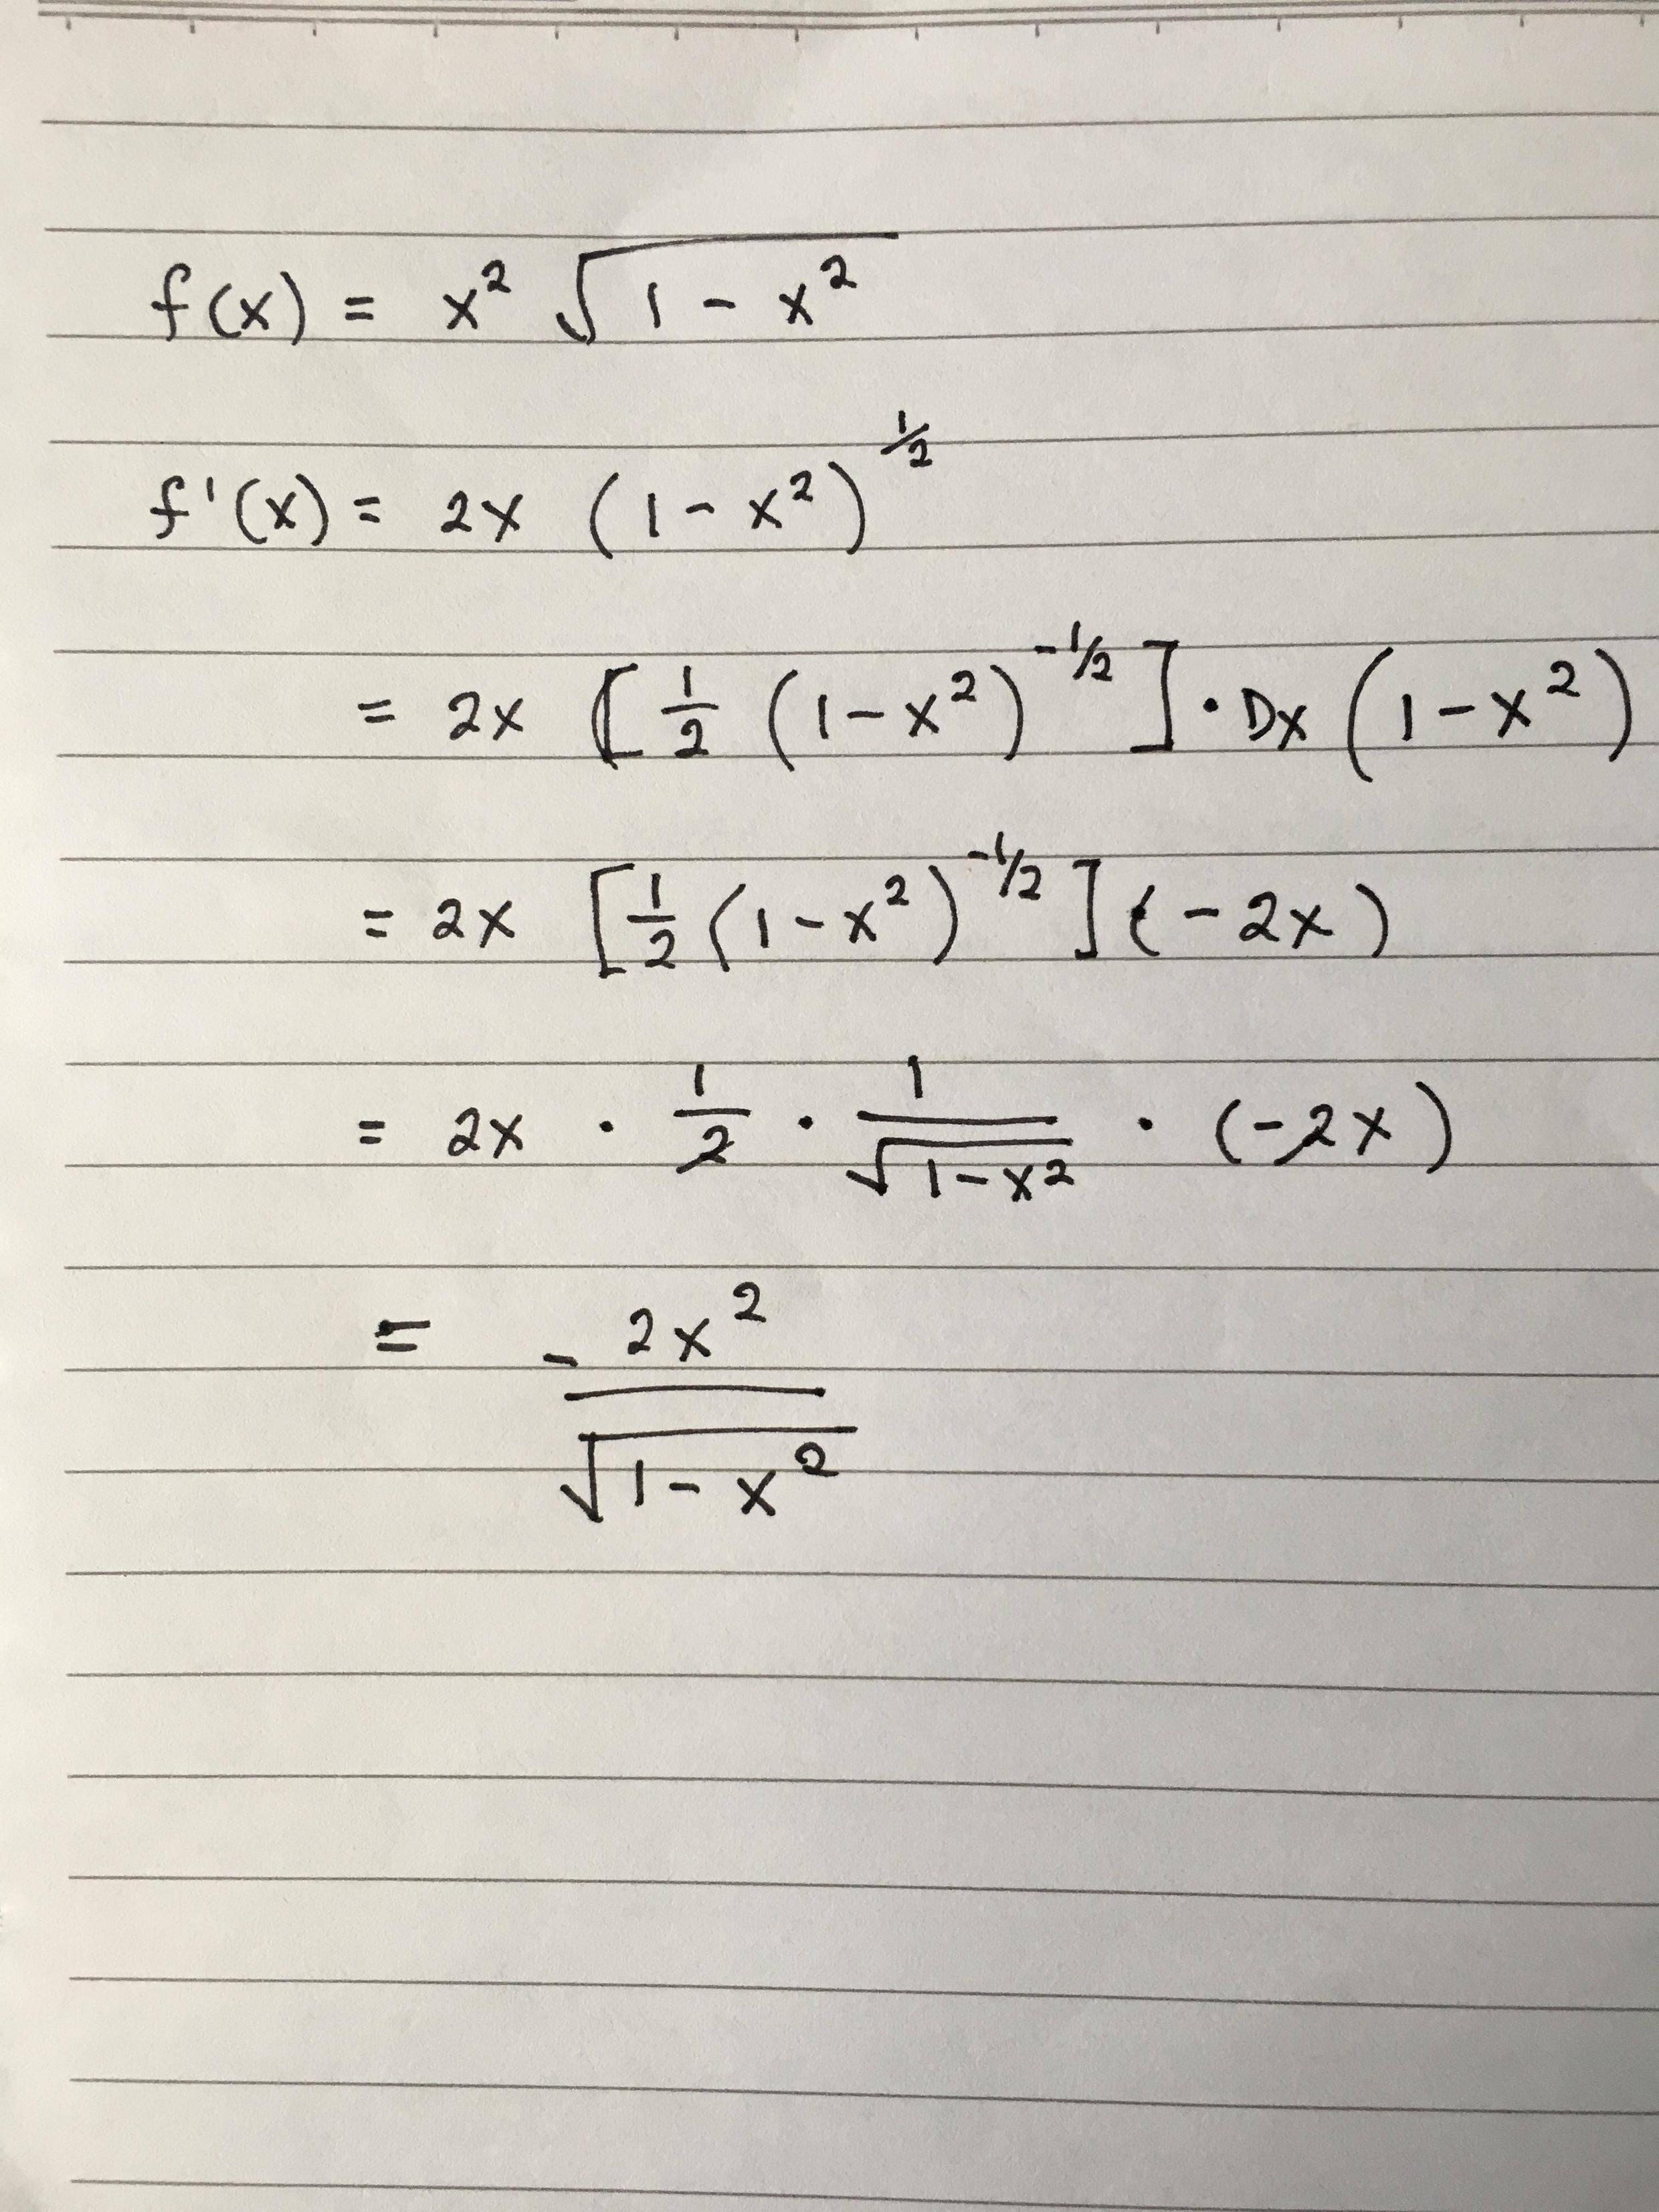 f(x) = x² √(1 - x²)
f'(x) = 2x (1 - x²)^½
= 2x [½ (1 - x²)^-½] · Dx (1 - x²)
= 2x [½ (1 - x²)^-½] (-2x)
= 2x · 1/2 · 1/√(1 - x²) · (-2x)
= -2x²/√(1 - x²)